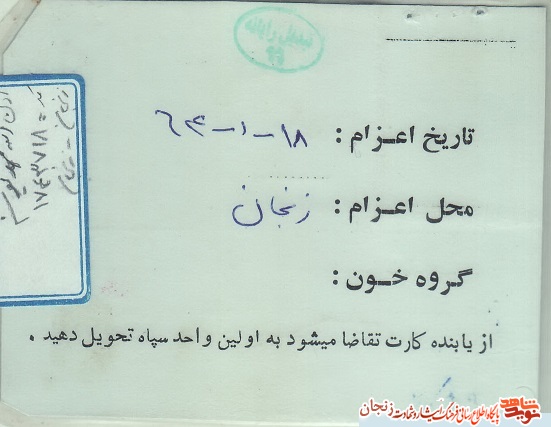 تاریخ اعزام : ۱۸-۱-۶۴
محل اعزام : زنجان
گروه خون :
از یابنده کارت تقاضا میشود به اولین واحد سپاه تحویل دهید .
کد = ۱۷۴۳۷۱۸
نوید شاهد
پایگاه اطلاع رسانی فرهنگ ایثار و شهادت زنجان